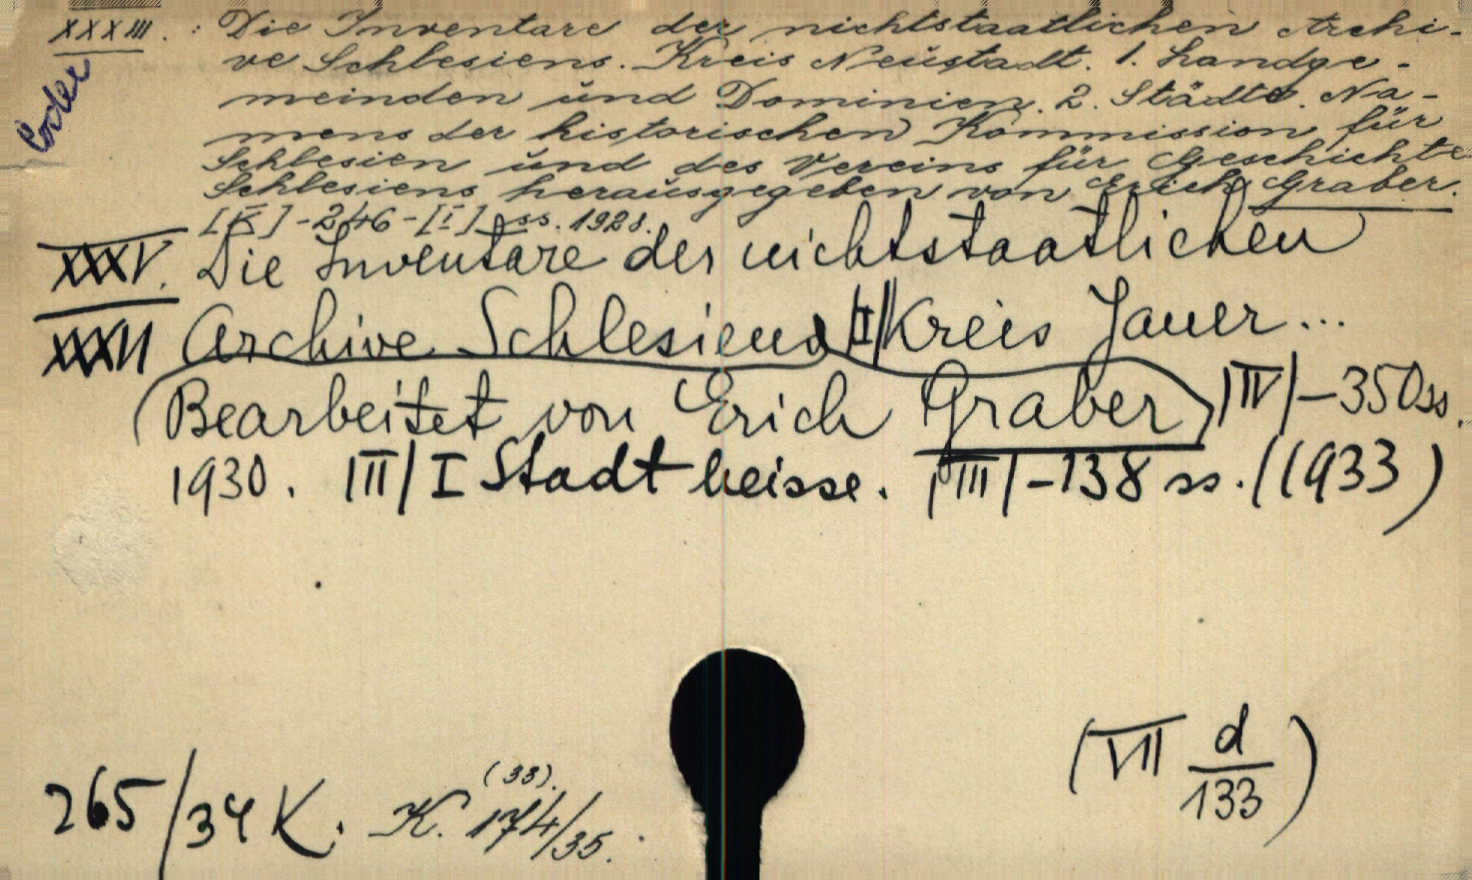 XXXIII. : Die Inventare der nichtstaatlichen Archi-
ve Schlesiens. Kreis Neustadt. 1. Landge-
meinden und Dominien. 2. Städte. Na-
mens der historischen Kommission für
Schlesien und des Vereins für Geschichte
Schlesiens herausgegeben von Erich Graber.
[X]-246-[I] ss. 1928.
XXXV. Die Inventare der nichtstaatlichen
XXXVI Archive Schlesiens |II| Kreis Jauer...
Bearbeitet von Erich Graber |IV|-350 ss.
1930. |II| I Stadt Neisse. |III|-138 ss. (1933)
(VII d/133)
265/34 K. K. 174/35. (33)